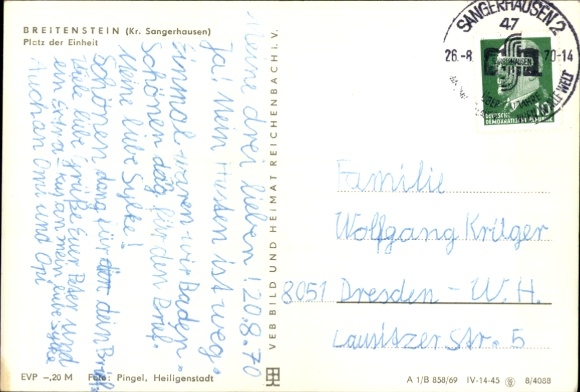 BREITENSTEIN (Kr. Sangerhausen)
Platz der Einheit
Meine drei lieben! 20.8.70
Ja! Mein Husten ist weg.
Einmal waren wir Baden.
Schönen dag für den Brief.
Meine liebe Sylke!
Schönen dang für dein Brief
Viele liebe grüße Euer Peter
ein Extra Kuß an mein liebe Sylke
Auch an Omi und Opi
EVP –,20 M Foto: Pingel, Heiligenstadt
VEB BILD UND HEIMAT REICHENBACH I. V.
SANGERHAUSEN 2
47
26.-8. 70-14
DEUTSCHE
DEMOKRATISCHE
Familie
Wolfgang Krüger
8051 Dresden - W. H.
Lausitzer Str. 5
A 1/B 858/69 IV-14-45 8/4088